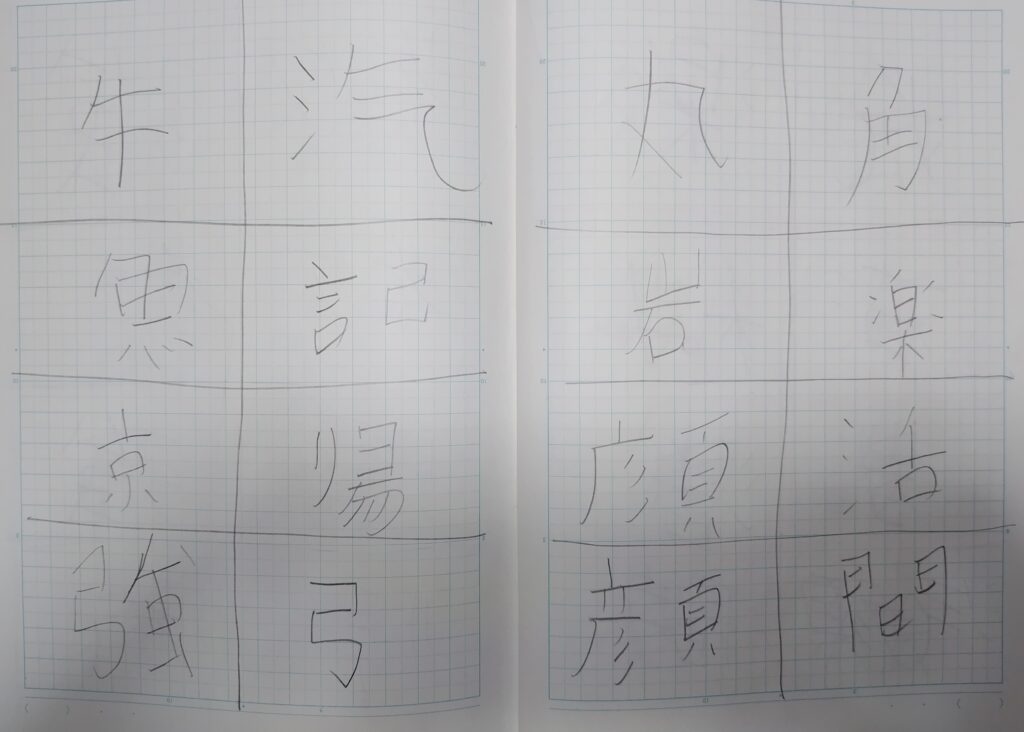 角楽活間
丸岩顔顔
汽記弓
牛魚京強